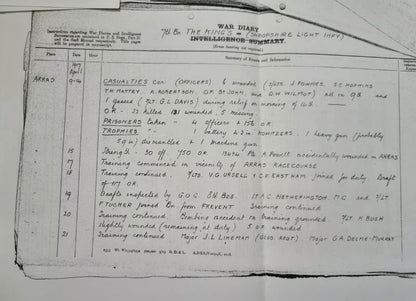 WAR DIARY
7th Bn THE KING'S (SHROPSHIRE LIGHT INFY)
INTELLIGENCE SUMMARY.
(Erase heading not required.)
Instructions regarding War Diaries and Intelligence
Summaries are contained in F.S. Regs., Part II.
and the Staff Manual respectively. Title pages
will be prepared in manuscript.
Place Date Hour Summary of Events and Information
1917
April
ARRAS 9-14 CASUALTIES Con. (OFFICERS) 6 wounded (2/LTS. J POWNEY. S.C HOPKINS
T.H. MATTEY, K. ROBERTSON, O.F. ST JOHN, and D.W WILMOT) all in and
1 gassed (2/LT. G.L DAVIS) during relief on morning of
OR - 33 killed 181 wounded, 5 missing
PRISONERS taken - 4 officers & 156 O.R.
TROPHIES " - battery 4.2 in HOWITZERS, 1 heavy gun (probably
5.9 in) dismantled & 1 machine gun
15 Strength - 30 off 750 OR. Pte A. Powell accidentally wounded in ARRAS
17 Training commenced in vicinity of ARRAS RACECOURSE
18 Training continued. 2/LTS. V.G. URSELL & C.F. EASTHAM joined for duty. Draft
of 117 OR.
19 Drafts inspected by G.O.C. 8th BDE. LT A.C. HETHERINGTON. M.C. and 2/LT
F TUCHER joined Bn from FREVENT Training continued
20 Training continued. Bombing accident on training grounds. 2/LT H BUSH
slightly wounded (remaining at duty) 5 OR wounded
21 Training continued Major J.L LIKEMAN (GLOS. REGT.) Major G.A DELME-MURRAY